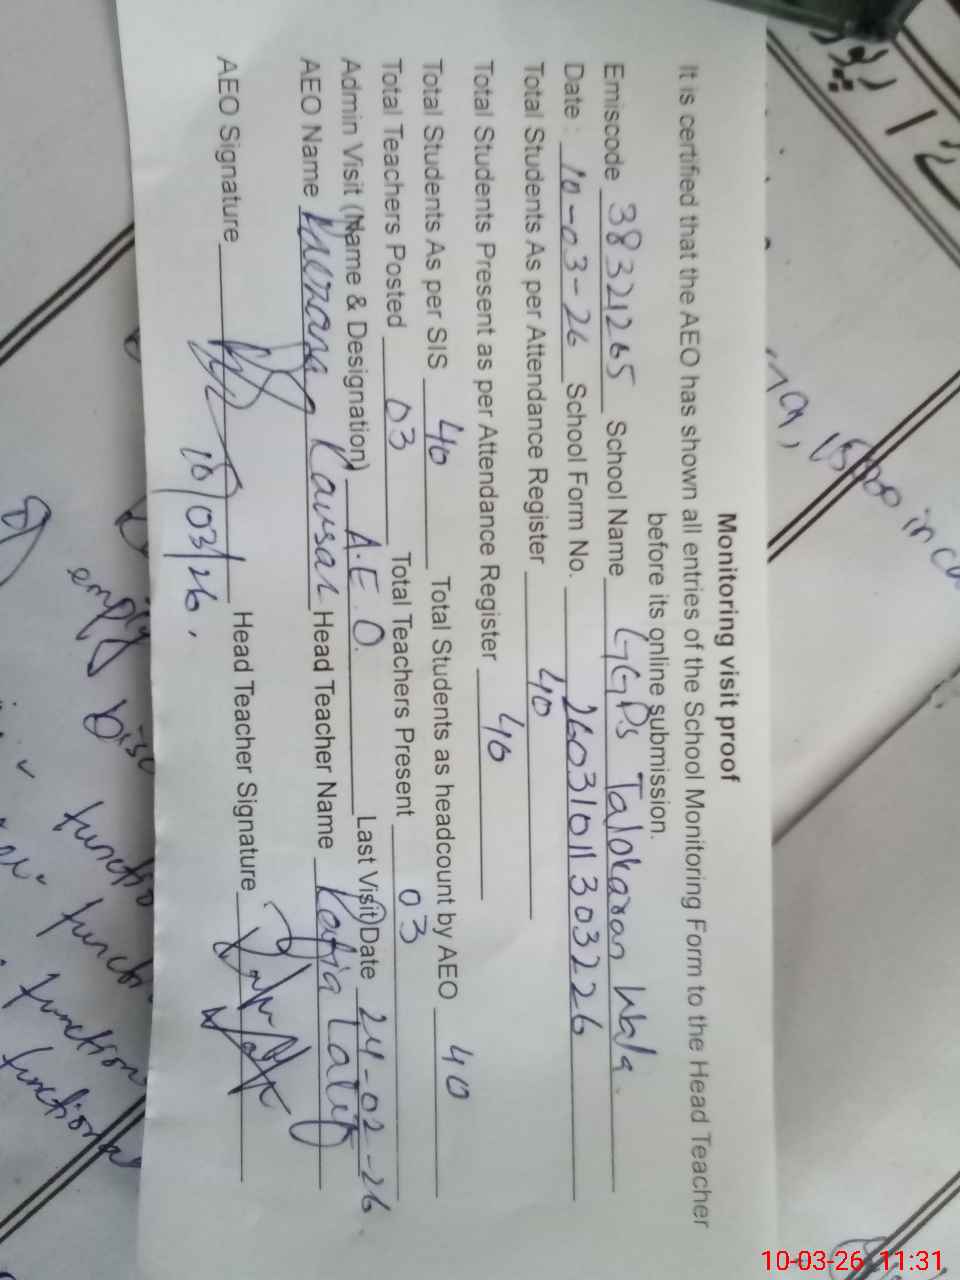 Monitoring visit proof
It is certified that the AEO has shown all entries of the School Monitoring Form to the Head Teacher
before its online submission.
Emiscode 38321265 School Name GGPS Talokaran Wala.
Date: 10-03-26 School Form No. 26031011303226
Total Students As per Attendance Register 40
Total Students Present as per Attendance Register 40
Total Students As per SIS 40 Total Students as headcount by AEO 40
Total Teachers Posted 03 Total Teachers Present 03
Admin Visit (Name & Designation) A.E.O. Last Visit Date 24-02-26
AEO Name Kausar Head Teacher Name Latif
AEO Signature Head Teacher Signature
10/03/26.
empty
function
function
function
functional
10-03-26 11:31